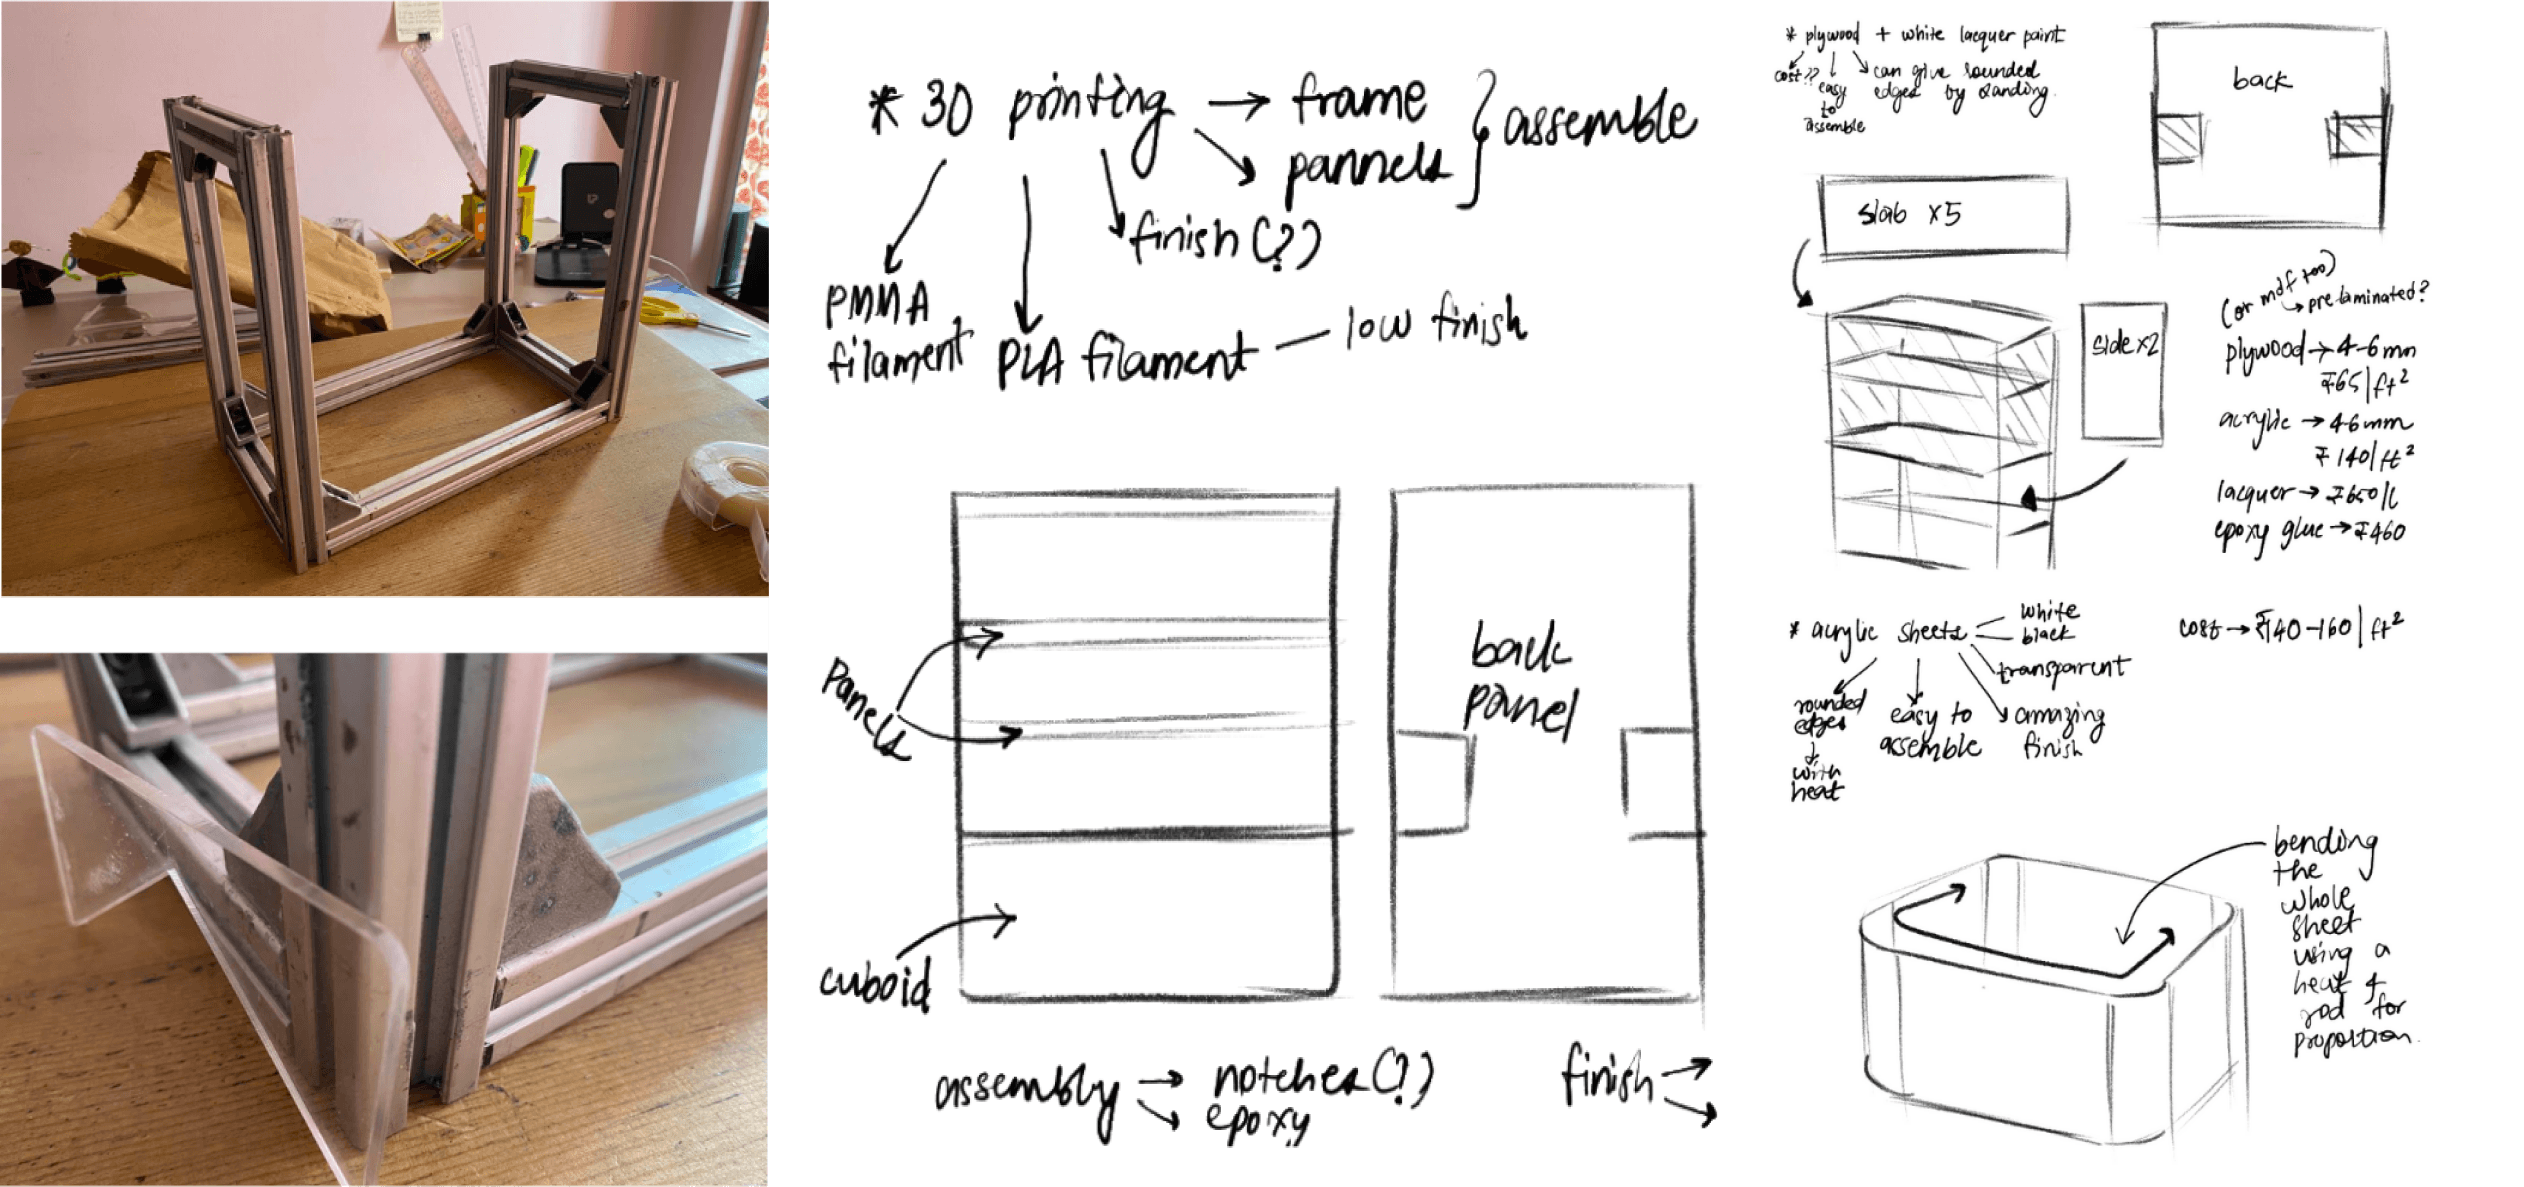 * 3D printing → frame
pannels
} assemble
finish (?)
PMMA
filament
PLA filament — low finish
Panels
cuboid
back
panel
assembly → notches (?)
epoxy
finish
* plywood + white lacquer paint
cost??
easy
to
assemble
can give rounded
edges by sanding.
back
slab x5
side x2
(or mdf too)
→ prelaminated?
plywood → 4-6 mm
₹65/ft²
acrylic → 4-6mm
₹140/ft²
lacquer → ₹650/l
epoxy glue → ₹460
* acrylic sheets
white
black
transparent
rounded
edges
↓
with
heat
easy to
assemble
amazing
finish
cost → ₹140-160/ft²
bending
the
whole
sheet
using a
heat &
rod for
proportion.